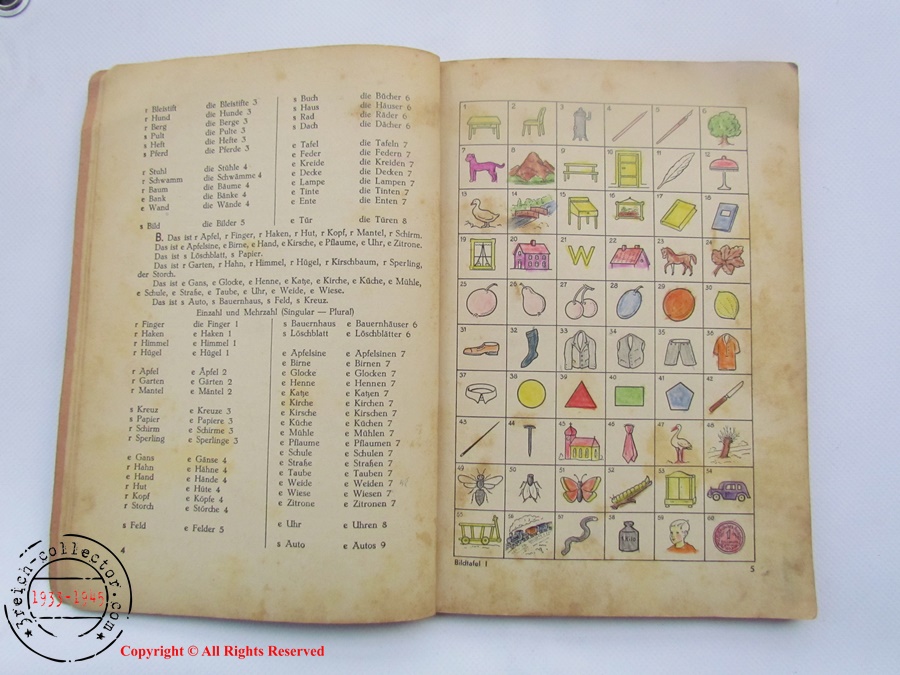 r Bleistift die Bleistifte 3
r Hund die Hunde 3
r Berg die Berge 3
s Pult die Pulte 3
s Heft die Hefte 3
s Pferd die Pferde 3
r Stuhl die Stühle 4
r Schwamm die Schwämme 4
r Baum die Bäume 4
e Bank die Bänke 4
e Wand die Wände 4
s Bild die Bilder 5
s Buch die Bücher 6
s Haus die Häuser 6
s Rad die Räder 6
s Dach die Dächer 6
e Tafel die Tafeln 7
e Feder die Federn 7
e Kreide die Kreiden 7
e Decke die Decken 7
e Lampe die Lampen 7
e Tinte die Tinten 7
e Ente die Enten 7
e Tür die Türen 8
B. Das ist r Apfel, r Finger, r Haken, r Hut, r Kopf, r Mantel, r Schirm.
Das ist e Apfelsine, e Birne, e Hand, e Kirsche, e Pflaume, e Uhr, e Zitrone.
Das ist s Löschblatt, s Papier.
Das ist r Garten, r Hahn, r Himmel, r Hügel, r Kirschbaum, r Sperling,
der Storch.
Das ist e Gans, e Glocke, e Henne, e Katze, e Kirche, e Küche, e Mühle,
e Schule, e Straße, e Taube, e Uhr, e Weide, e Wiese.
Das ist s Auto, s Bauernhaus, s Feld, s Kreuz.
Einzahl und Mehrzahl (Singular — Plural)
r Finger die Finger 1
r Haken e Haken 1
r Himmel e Himmel 1
r Hügel e Hügel 1
r Apfel e Äpfel 2
r Garten e Gärten 2
r Mantel e Mäntel 2
s Kreuz e Kreuze 3
s Papier e Papiere 3
r Schirm e Schirme 3
r Sperling e Sperlinge 3
e Gans e Gänse 4
r Hahn e Hähne 4
e Hand e Hände 4
r Hut e Hüte 4
r Kopf e Köpfe 4
r Storch e Störche 4
s Feld e Felder 5
s Bauernhaus e Bauernhäuser 6
s Löschblatt e Löschblätter 6
e Apfelsine e Apfelsinen 7
e Birne e Birnen 7
e Glocke e Glocken 7
e Henne e Hennen 7
e Katze e Katzen 7
e Kirche e Kirchen 7
e Kirsche e Kirschen 7
e Küche e Küchen 7
e Mühle e Mühlen 7
e Pflaume e Pflaumen 7
e Schule e Schulen 7
e Straße e Straßen 7
e Taube e Tauben 7
e Weide e Weiden 7
e Wiese e Wiesen 7
e Zitrone e Zitronen 7
e Uhr e Uhren 8
s Auto e Autos 9
4
1 2 3 4 5 6
7 8 9 10 11 12
13 14 15 16 17 18
19 20 21 22 23 24
W
25 26 27 28 29 30
31 32 33 34 35 36
37 38 39 40 41 42
43 44 45 46 47 48
49 50 51 52 53 54
55 56 57 58 59 60
1 Kilo
1
Bildtafel I
5
3reich-collector.com
1933-1945
Copyright © All Rights Reserved